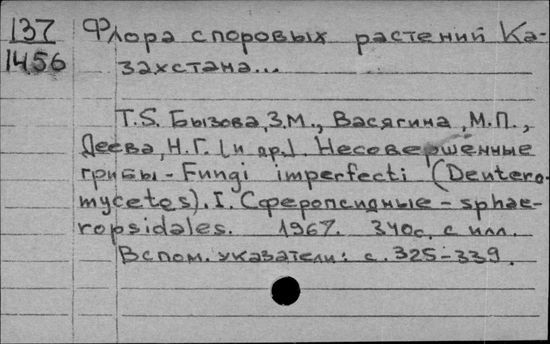 137
1456
Флора споровых растений Ка-
захстана...
Т.5. Бызова, З.М., Васягина, М.П.,
Деева, Н.Г. [и др.]. Несовершенные
грибы - Fungi imperfecti (Deutero-
mycetes). I. Сферопсидные - sphae-
ropsidales. 1967. 340с. с илл.
Вспом. указатели: с. 325-339.